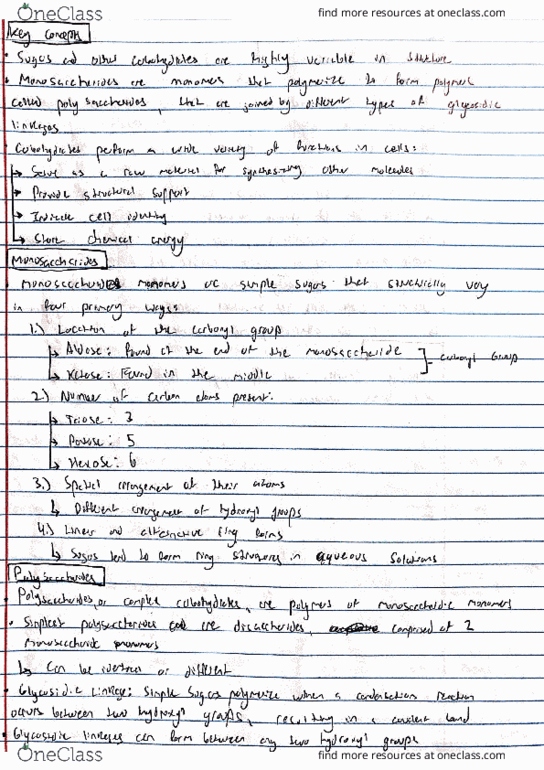 OneClass
find more resources at oneclass.com
Key Concepts
• Sugars and other carbohydrates are highly variable in structure
• Monosaccharides are monomers that polymerize to form polymers
called polysaccharides, that are joined by different types of glycosidic
linkages
• Carbohydrates perform a wide variety of functions in cells:
↳ Serve as a raw material for synthesizing other molecules
↳ Provide structural support
↳ Indicate cell identity
↳ Store chemical energy
Monosaccharides
• Monosaccharide monomers are simple sugars that structurally vary
in four primary ways:
1.) Location of the carbonyl group
↳ Aldose: Found at the end of the monosaccharide
↳ Ketose: Found in the middle
] - Carbonyl Group
2.) Number of carbon atoms present:
↳ Triose: 3
↳ Pentose: 5
↳ Hexose: 6
3.) Spatial arrangement of their atoms
↳ Different arrangement of hydroxyl groups
4.) Linear and alternative ring forms
↳ Sugars tend to form ring structures in aqueous solutions
Polysaccharides
• Polysaccharides, or complex carbohydrates, are polymers of monosaccharide monomers
• Simplest polysaccharides are disaccharides, comprised of 2
monosaccharide monomers
↳ Can be identical or different
• Glycosidic Linkage: Simple sugars polymerize when a condensation reaction
occurs between two hydroxyl groups, resulting in a covalent bond
• Glycosidic linkages can form between any two hydroxyl groups
OneClass
find more resources at oneclass.com